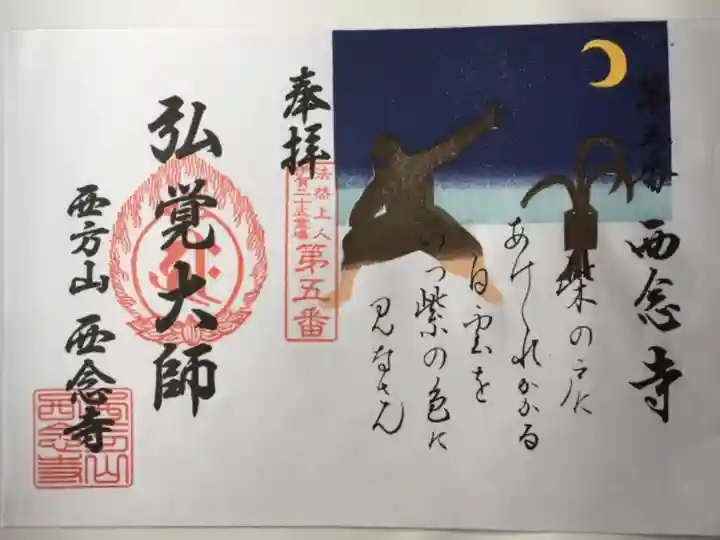 第五番 西念寺
柴の戸に
あけくれかかる
白雲を
いつ紫の色に
見なさん
奉拝
法然上人
滋賀二十五霊場
第五番
弘覚大師
西方山 西念寺
西方山
西念寺